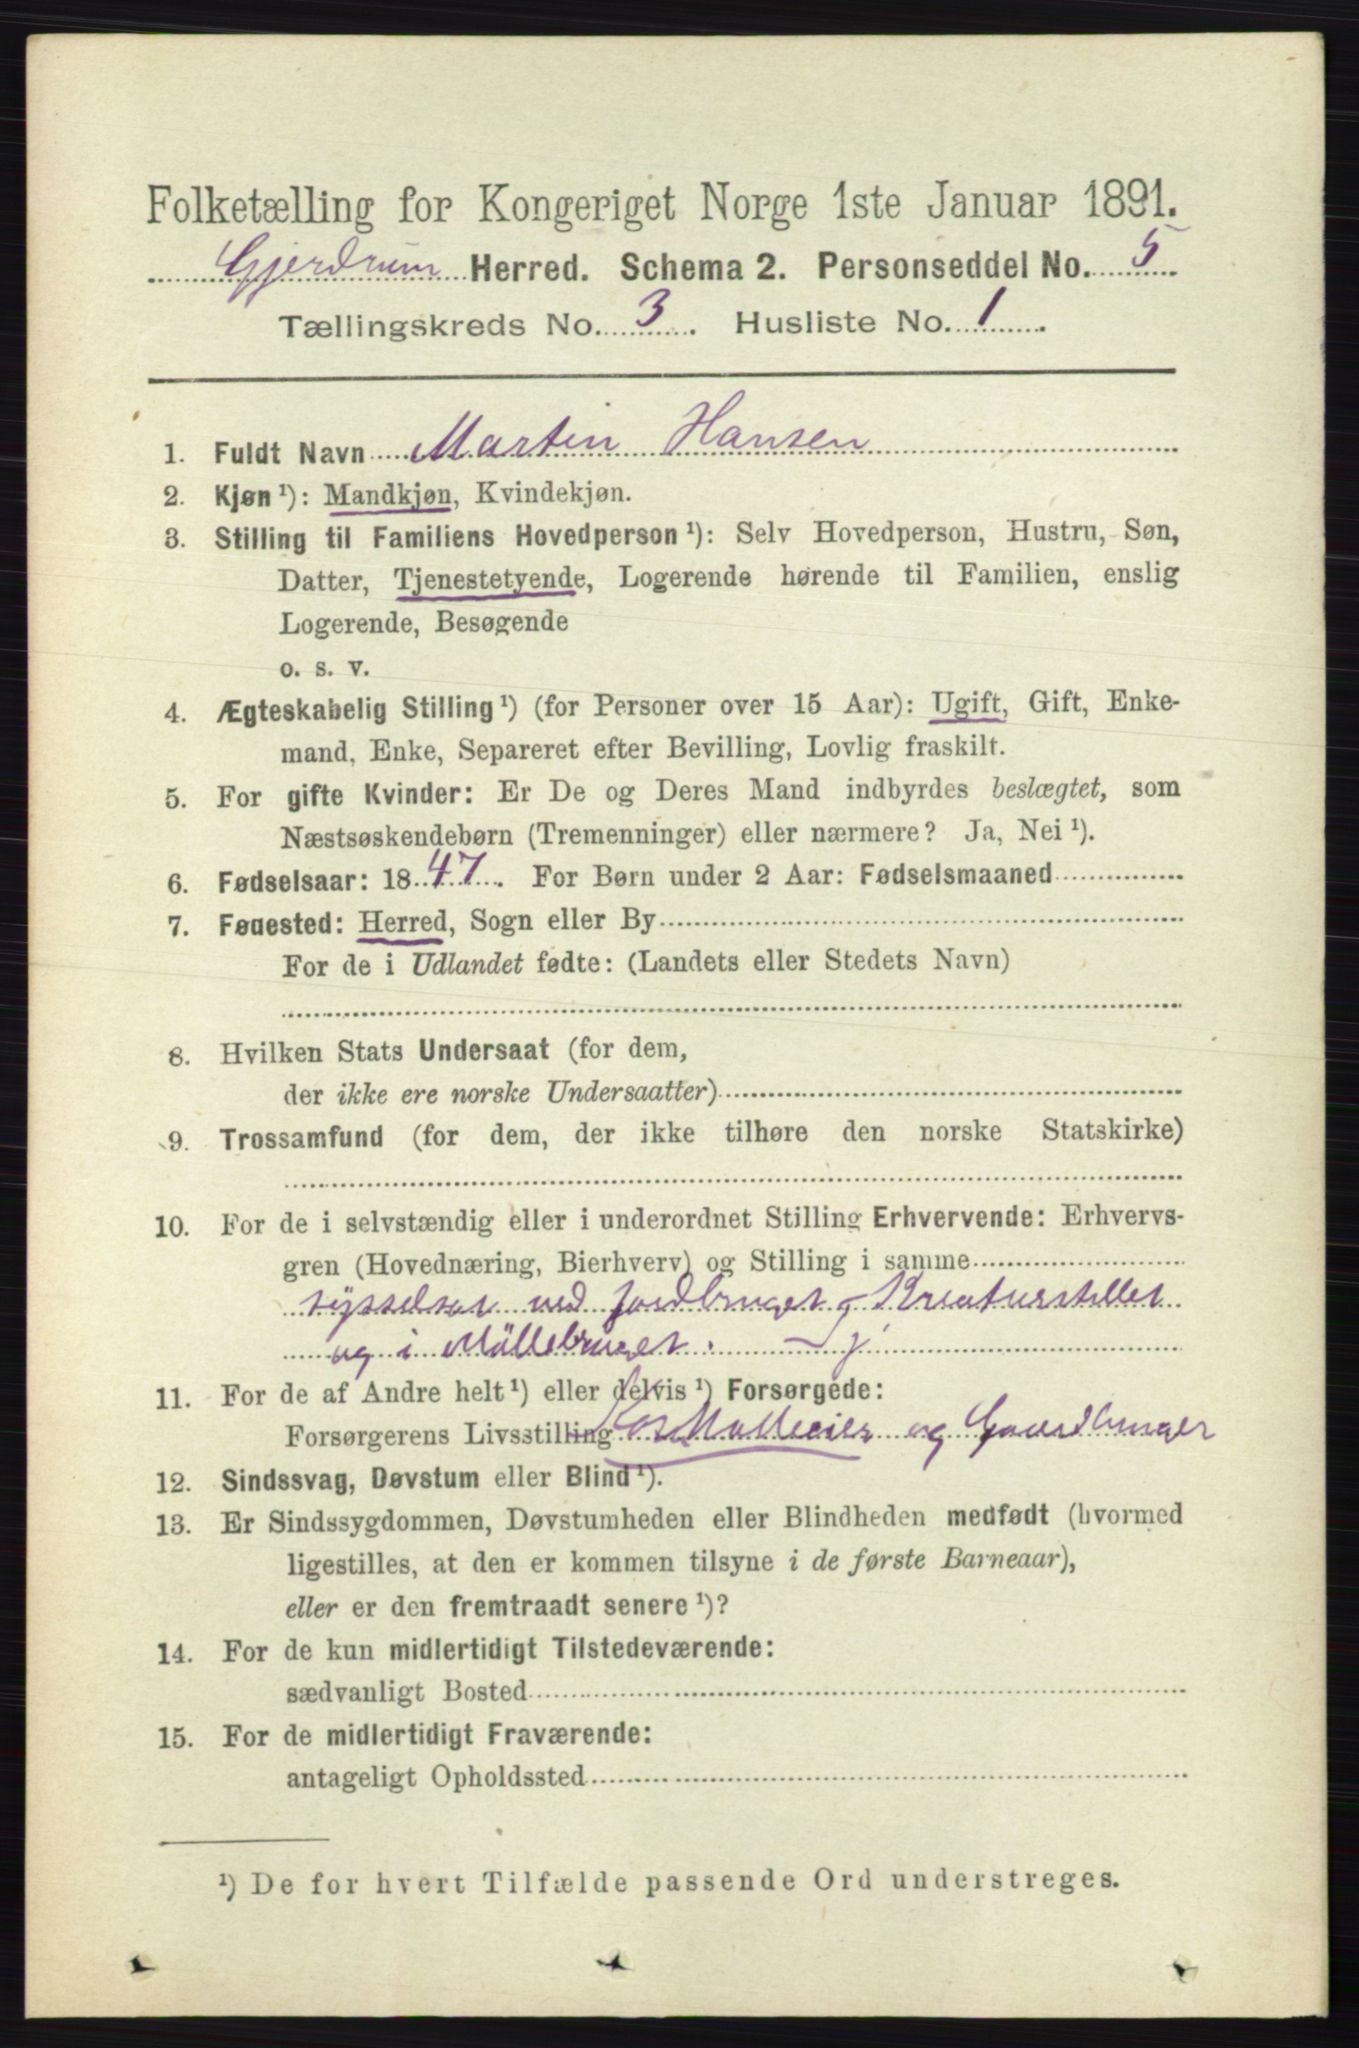 Folketælling for Kongeriget Norge 1ste Januar 1891.
Gjerdrum Herred. Schema 2. Personseddel No. 5
Tællingskreds No. 3. Husliste No. 1.
1. Fuldt Navn Martin Hansen
2. Kjøn ¹): Mandkjøn, Kvindekjøn.
3. Stilling til Familiens Hovedperson ¹): Selv Hovedperson, Hustru, Søn,
Datter, Tjenestetyende, Logerende hørende til Familien, enslig
Logerende, Besøgende
o. s. v.
4. Ægteskabelig Stilling ¹) (for Personer over 15 Aar): Ugift, Gift, Enke-
mand, Enke, Separeret efter Bevilling, Lovlig fraskilt.
5. For gifte Kvinder: Er De og Deres Mand indbyrdes beslægtet, som
Næstsøskendebørn (Tremenninger) eller nærmere? Ja, Nei ¹).
6. Fødselsaar: 1847. For Børn under 2 Aar: Fødselsmaaned
7. Føuested: Herred, Sogn eller By
For de i Udlandet fødte: (Landets eller Stedets Navn)
8. Hvilken Stats Undersaat (for dem,
der ikke ere norske Undersaatter)
9. Trossamfund (for dem, der ikke tilhøre den norske Statskirke)
10. For de i selvstændig eller i underordnet Stilling Erhvervende: Erhvervs-
gren (Hovednæring, Bierhverv) og Stilling i samme
sysselsat ved Jordbruget og Kreaturstellet
og i Möllebruget.
11. For de af Andre helt ¹) eller delvis ¹) Forsørgede:
Forsørgerens Livsstilling Mølleeier og Gaardbruger
12. Sindssvag, Døvstum eller Blind ¹).
13. Er Sindssygdommen, Døvstumheden eller Blindheden medfødt (hvormed
ligestilles, at den er kommen tilsyne i de første Barneaar),
eller er den fremtraadt senere ¹)?
14. For de kun midlertidigt Tilstedeværende:
sædvanligt Bosted
15. For de midlertidigt Fraværende:
antageligt Opholdssted
¹) De for hvert Tilfælde passende Ord understreges.